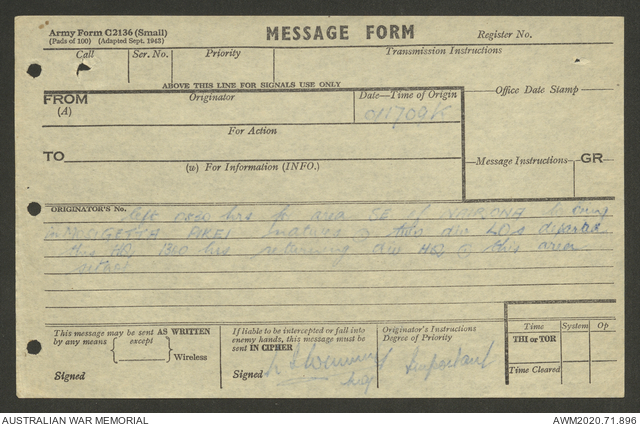 Army Form C2136 (Small)
(Pads of 100) (Adapted Sept. 1943)
MESSAGE FORM
Register No.
Call
Ser. No.
Priority
Transmission Instructions
ABOVE THIS LINE FOR SIGNALS USE ONLY
FROM
(A)
Originator
Date—Time of Origin
Office Date Stamp
011709K
For Action
TO
(W) For Information (INFO.)
Message Instructions
GR
ORIGINATOR'S No.
left hrs for area SE of to bring
in natives two div LOs departed
this HQ 1360 hrs returning div HQ this area
This message may be sent AS WRITTEN
by any means except
Wireless
Signed
If liable to be intercepted or fall into
enemy hands, this message must be
sent IN CIPHER
Signed
Maj
Originator's Instructions
Degree of Priority
Important
Time
System
Op
THI or TOR
Time Cleared
AUSTRALIAN WAR MEMORIAL
AWM2020.71.896